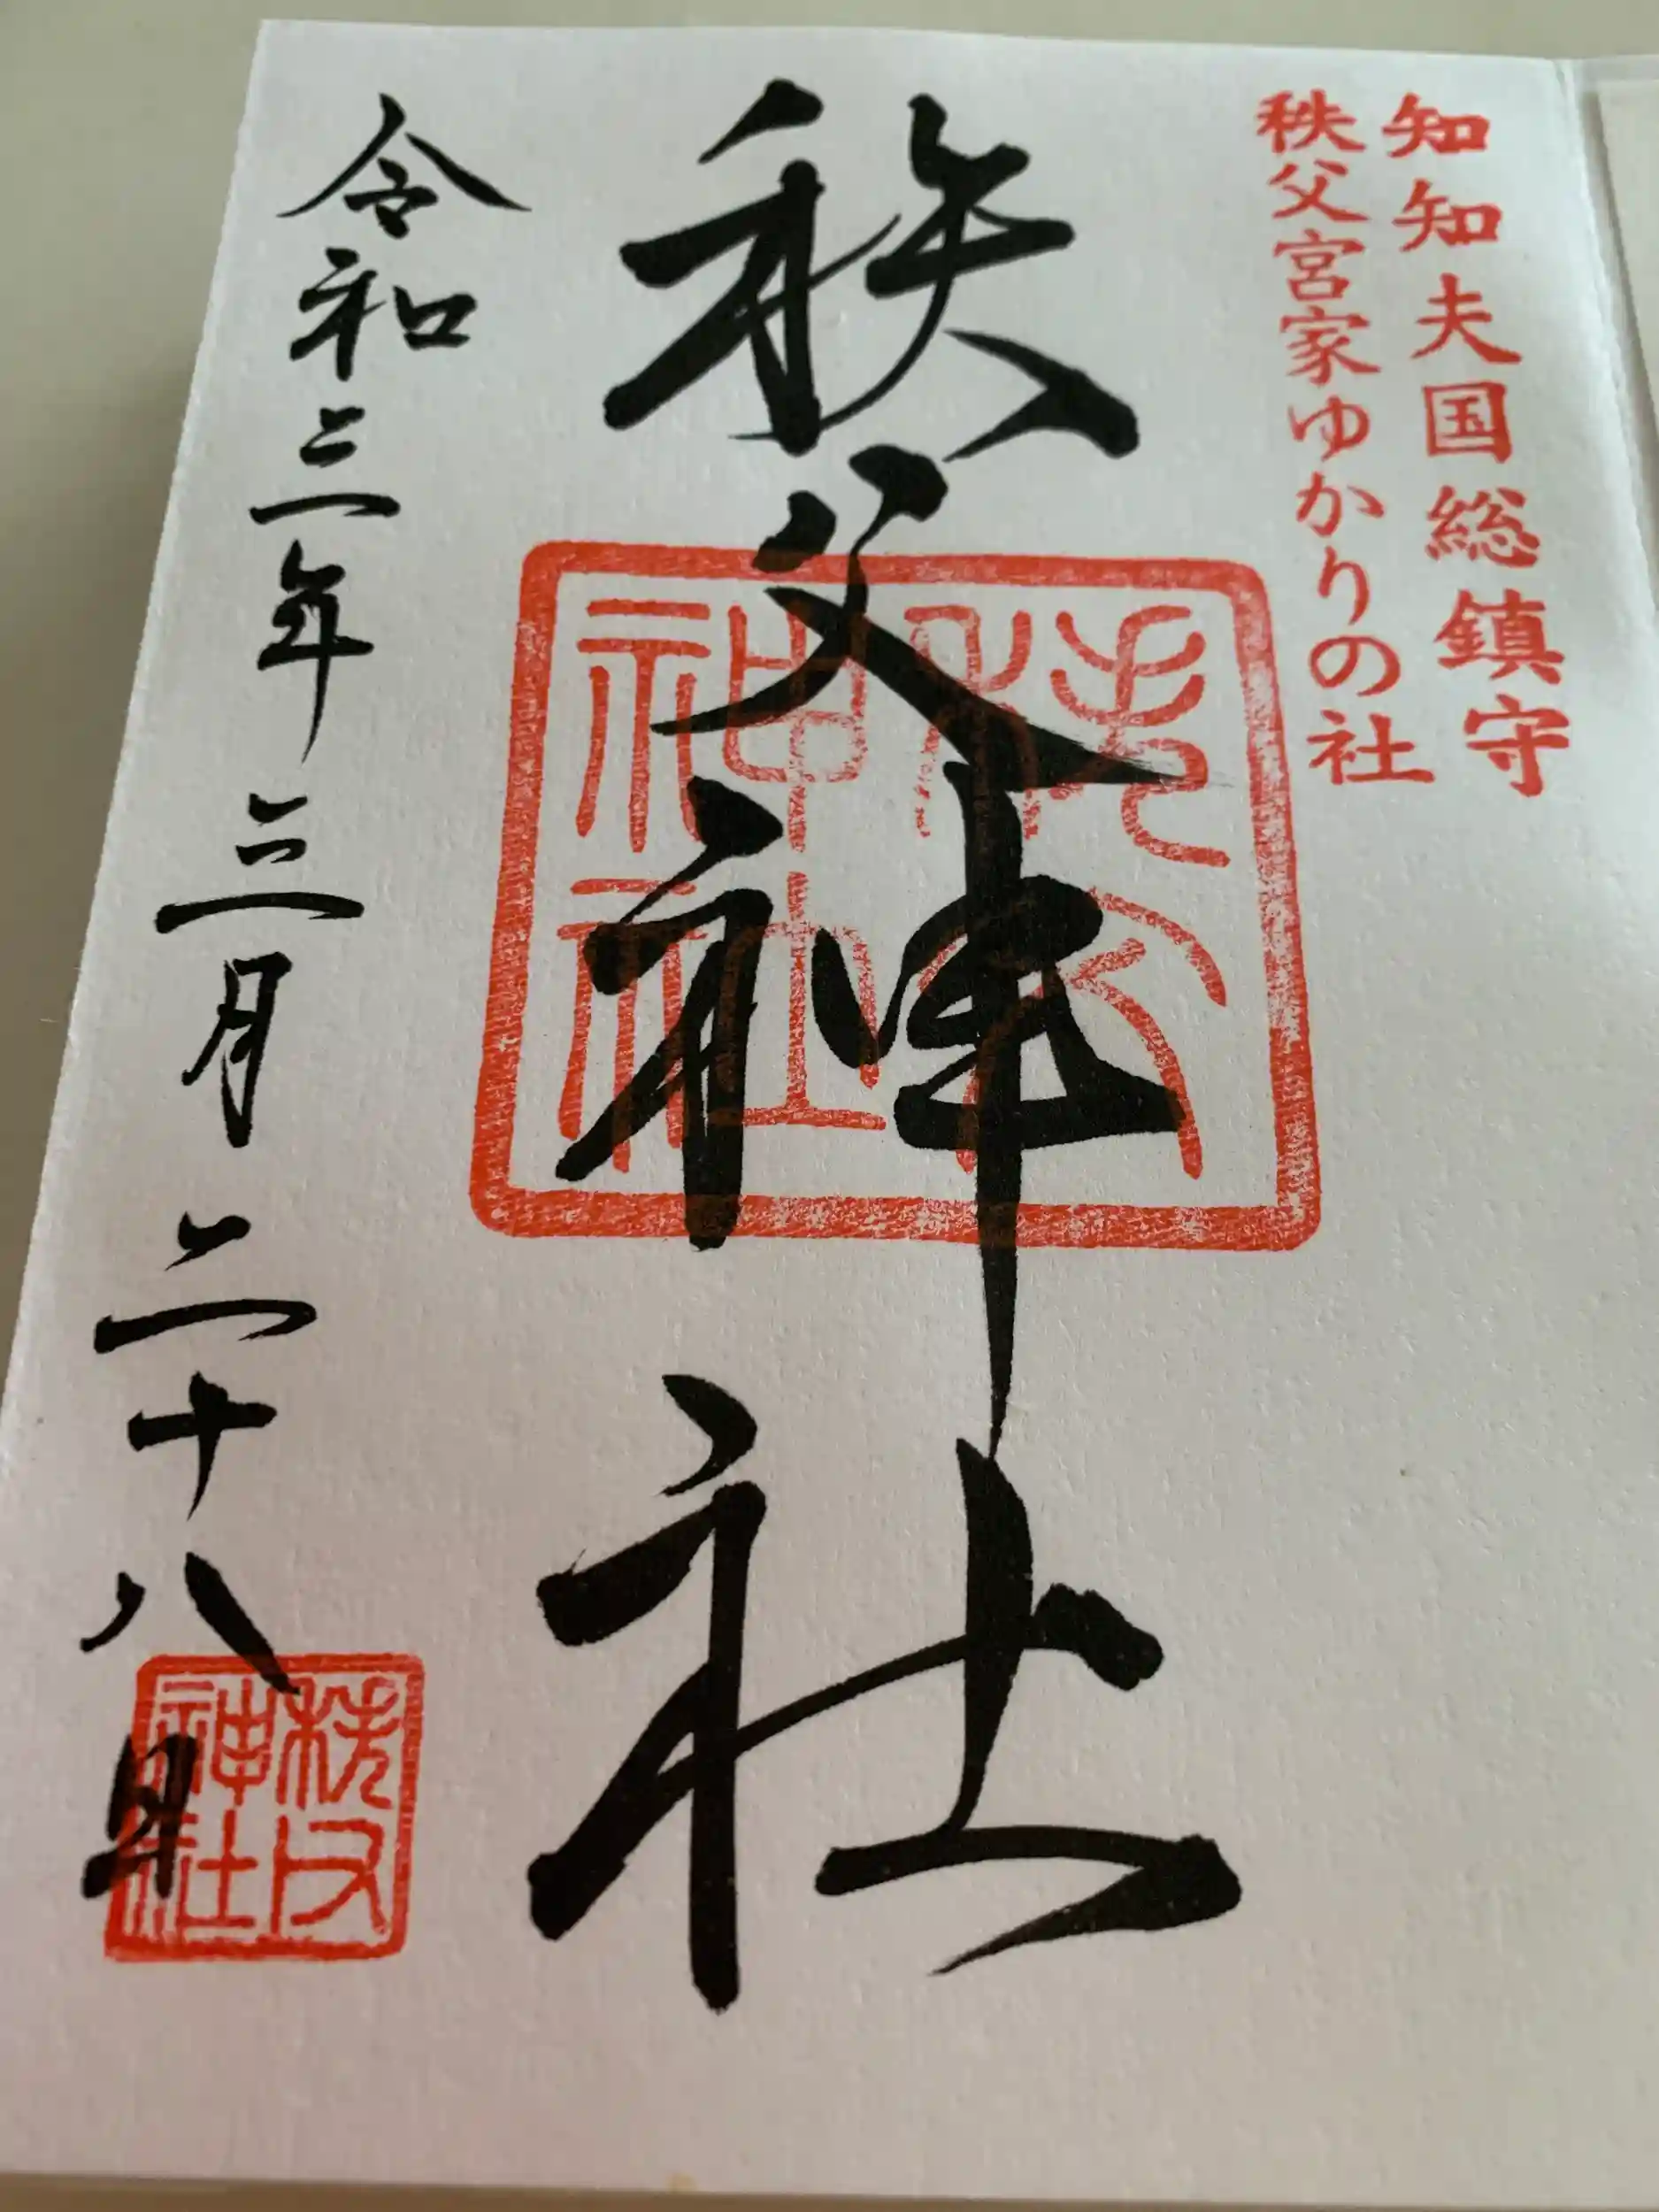 知知夫国総鎮守
秩父宮家ゆかりの社
秩父神社
秩父神社
令和三年三月二十八日
秩父神社